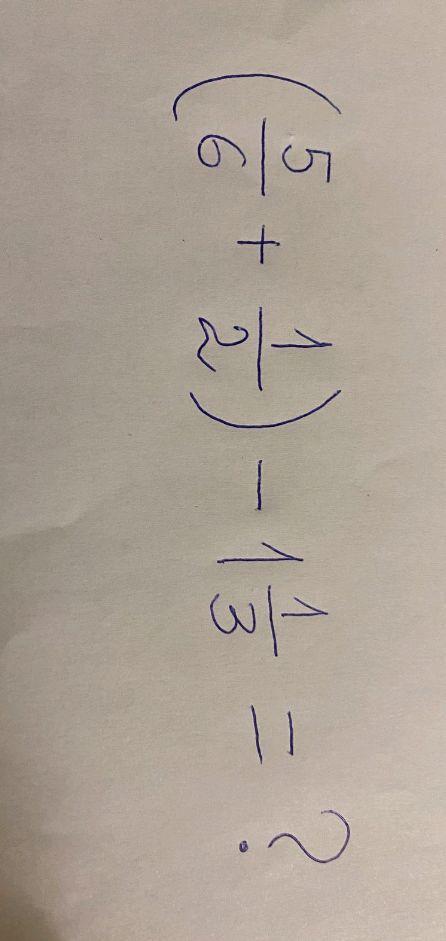 (5/6 + 1/2) - 1 1/3 = ?